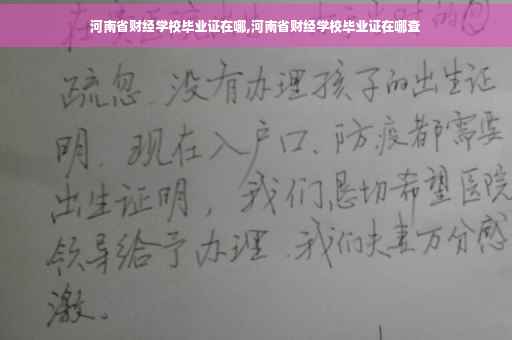 河南省财经学校毕业证在哪,河南省财经学校毕业证在哪查
疏忽、没有办理孩子的出生证
明、现在入户口、防疫都需要
出生证明，我们恳切希望医院
领导给予办理、我们夫妻万分感
激。